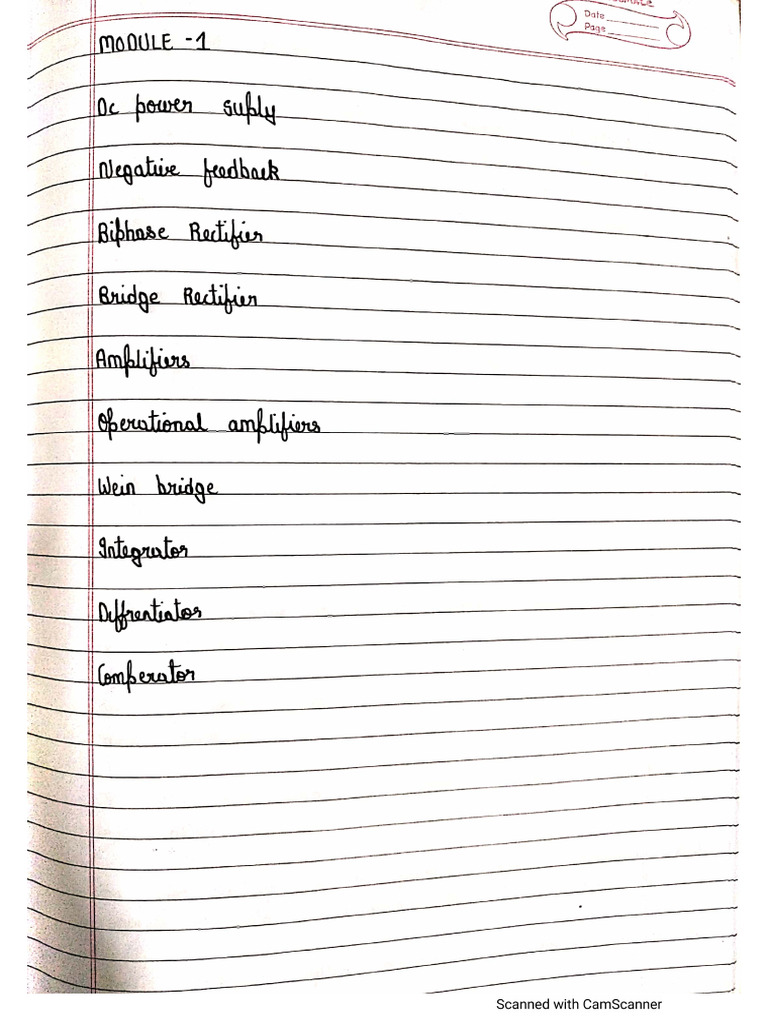 Date
Page
MODULE - 1
Dc power supply
Negative feedback
Biphase Rectifier
Bridge Rectifier
Amplifiers
Operational amplifiers
Wein bridge
Integrator
Diffrentiator
Comperator
Scanned with CamScanner